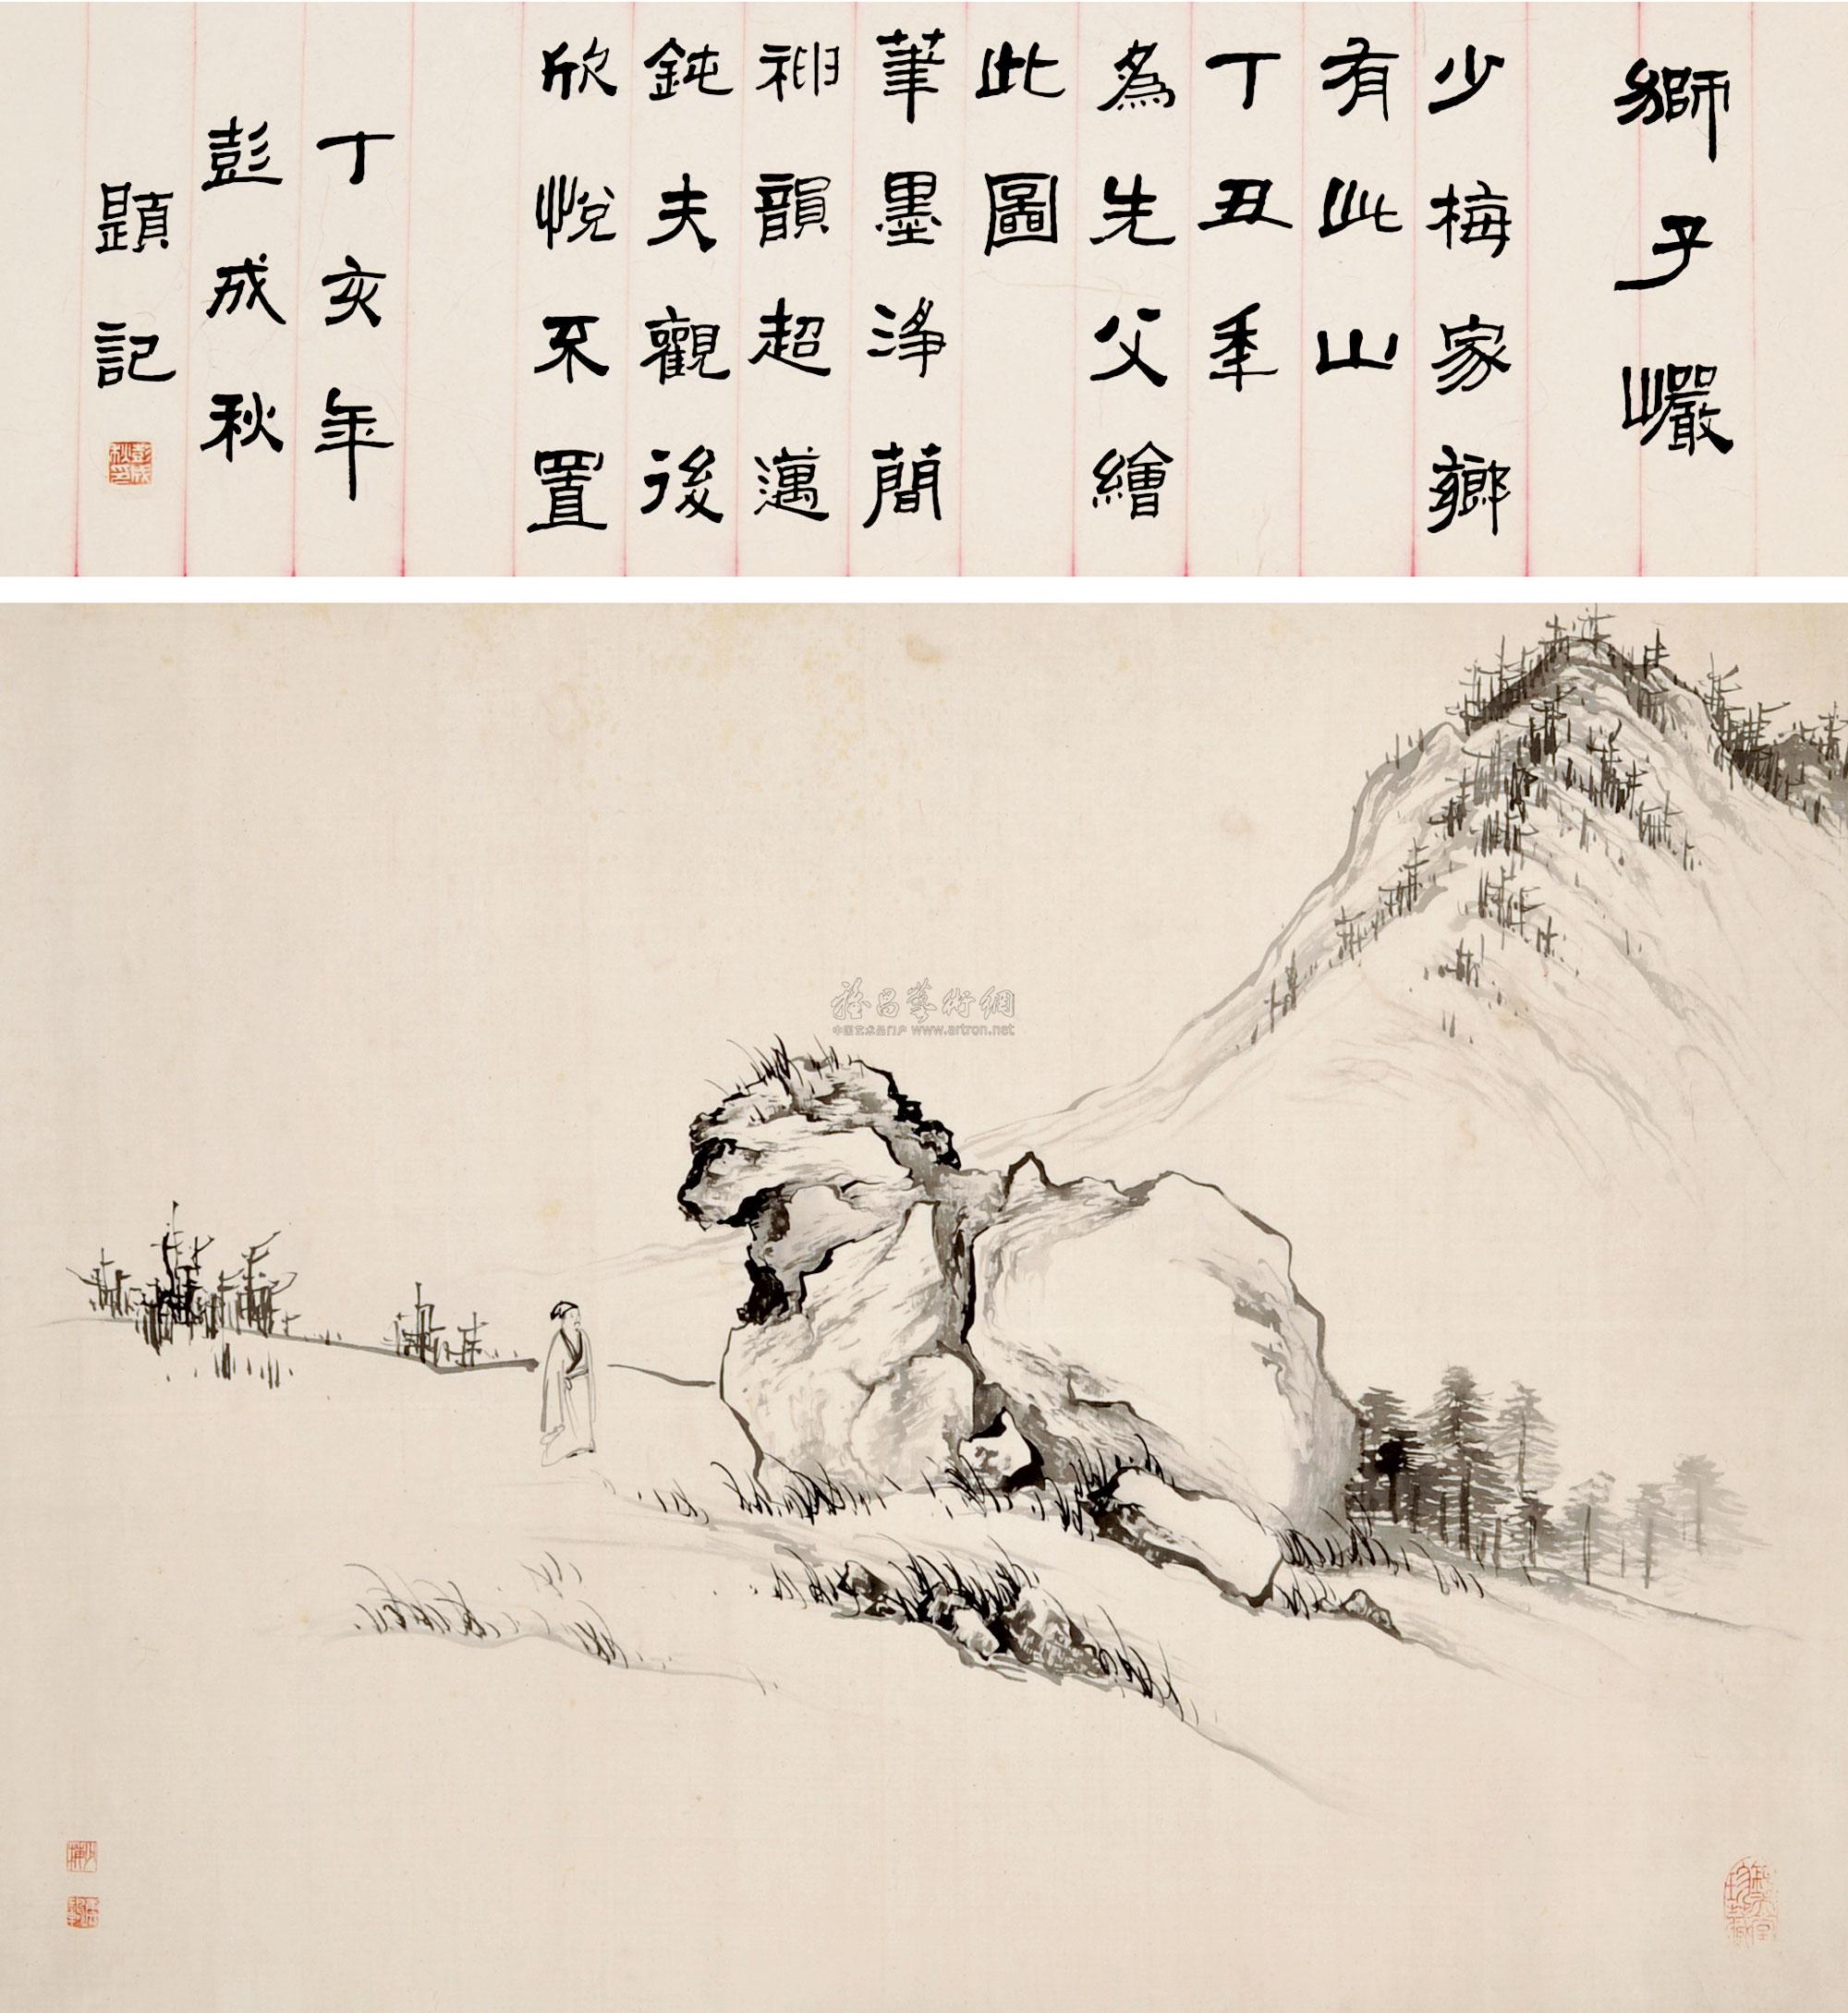 獅子巖
少梅家鄉
有此山
丁丑年
為先父繪
此圖
筆墨淨簡
神韻超邁
鈍夫觀後
欣悅不置
丁亥年
彭成秋
題記
彭成秋印
雅昌藝術網
中国艺术品门户 www.artron.net
少梅